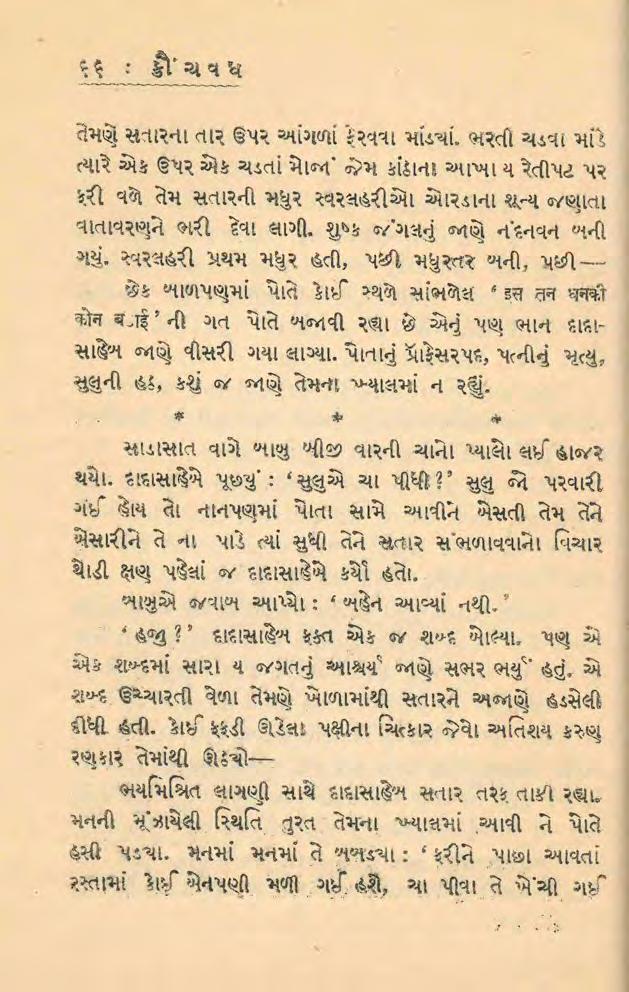 ૬૬ : ક્રૌંચવધ
તેમણે સતારના તાર ઉપર આંગળાં ફેરવવા માંડ્યાં. ભરતી ચડવા માંડે
ત્યારે એક ઉપર એક ચડતાં મોજાં જેમ કાંઠાના આખા ય રેતીપટ પર
ફરી વળે તેમ સતારની મધુર સ્વરલહરીઓ ઓરડાના શૂન્ય જણાતા
વાતાવરણને ભરી દેવા લાગી. શુષ્ક જંગલનું જાણે નંદનવન બની
ગયું. સ્વરલહરી પ્રથમ મધુર હતી, પછી મધુરતર બની, પછી—
છેક બાળપણમાં પોતે કોઈ સ્થળે સાંભળેલ ‘ इस तन धनकी
कोन बडाई ’ ની ગત પોતે બજાવી રહ્યા છે એનું પણ ભાન દાદા-
સાહેબ જાણે વીસરી ગયા લાગ્યા. પોતાનું પ્રૉફેસરપદ, પત્નીનું મૃત્યુ,
સુલુની હઠ, કશું જ જાણે તેમના ખ્યાલમાં ન રહ્યું.
* * *
સાડાસાત વાગે બાબુ બીજી વારની ચાનો પ્યાલો લઈ હાજર
થયો. દાદાસાહેબે પૂછયું : ‘ સુલુએ ચા પીધી ? ’ સુલુ જો પરવારી
ગઈ હોય તો નાનપણમાં પોતા સામે આવીને બેસતી તેમ તેને
બેસારીને તે ના પાડે ત્યાં સુધી તેને સતાર સંભળાવવાનો વિચાર
થોડી ક્ષણ પહેલાં જ દાદાસાહેબે કર્યો હતો.
બાબુએ જવાબ આપ્યો : ‘ બહેન આવ્યાં નથી. ’
‘ હજી ? ’ દાદાસાહેબ ફક્ત એક જ શબ્દ બોલ્યા. પણ એ
એક શબ્દમાં સારા ય જગતનું આશ્ચર્ય જાણે સભર ભર્યું હતું. એ
શબ્દ ઉચ્ચારતી વેળા તેમણે ખોળામાંથી સતારને અજાણે હડસેલી
દીધી હતી. કોઈ ફફડી ઊઠેલા પક્ષીના ચિત્કાર જેવો અતિશય કરુણ
રણકાર તેમાંથી ઊઠ્યો—
ભયમિશ્રિત લાગણી સાથે દાદાસાહેબ સતાર તરફ તાકી રહ્યા.
મનની મૂંઝાયેલી સ્થિતિ તુરત તેમના ખ્યાલમાં આવી ને પોતે
હસી પડ્યા. મનમાં મનમાં તે બબડ્યા : ‘ ફરીને પાછા આવતાં
રસ્તામાં કોઈ બેનપણી મળી ગઈ હશે, ચા પીવા તે ખેંચી ગઈ